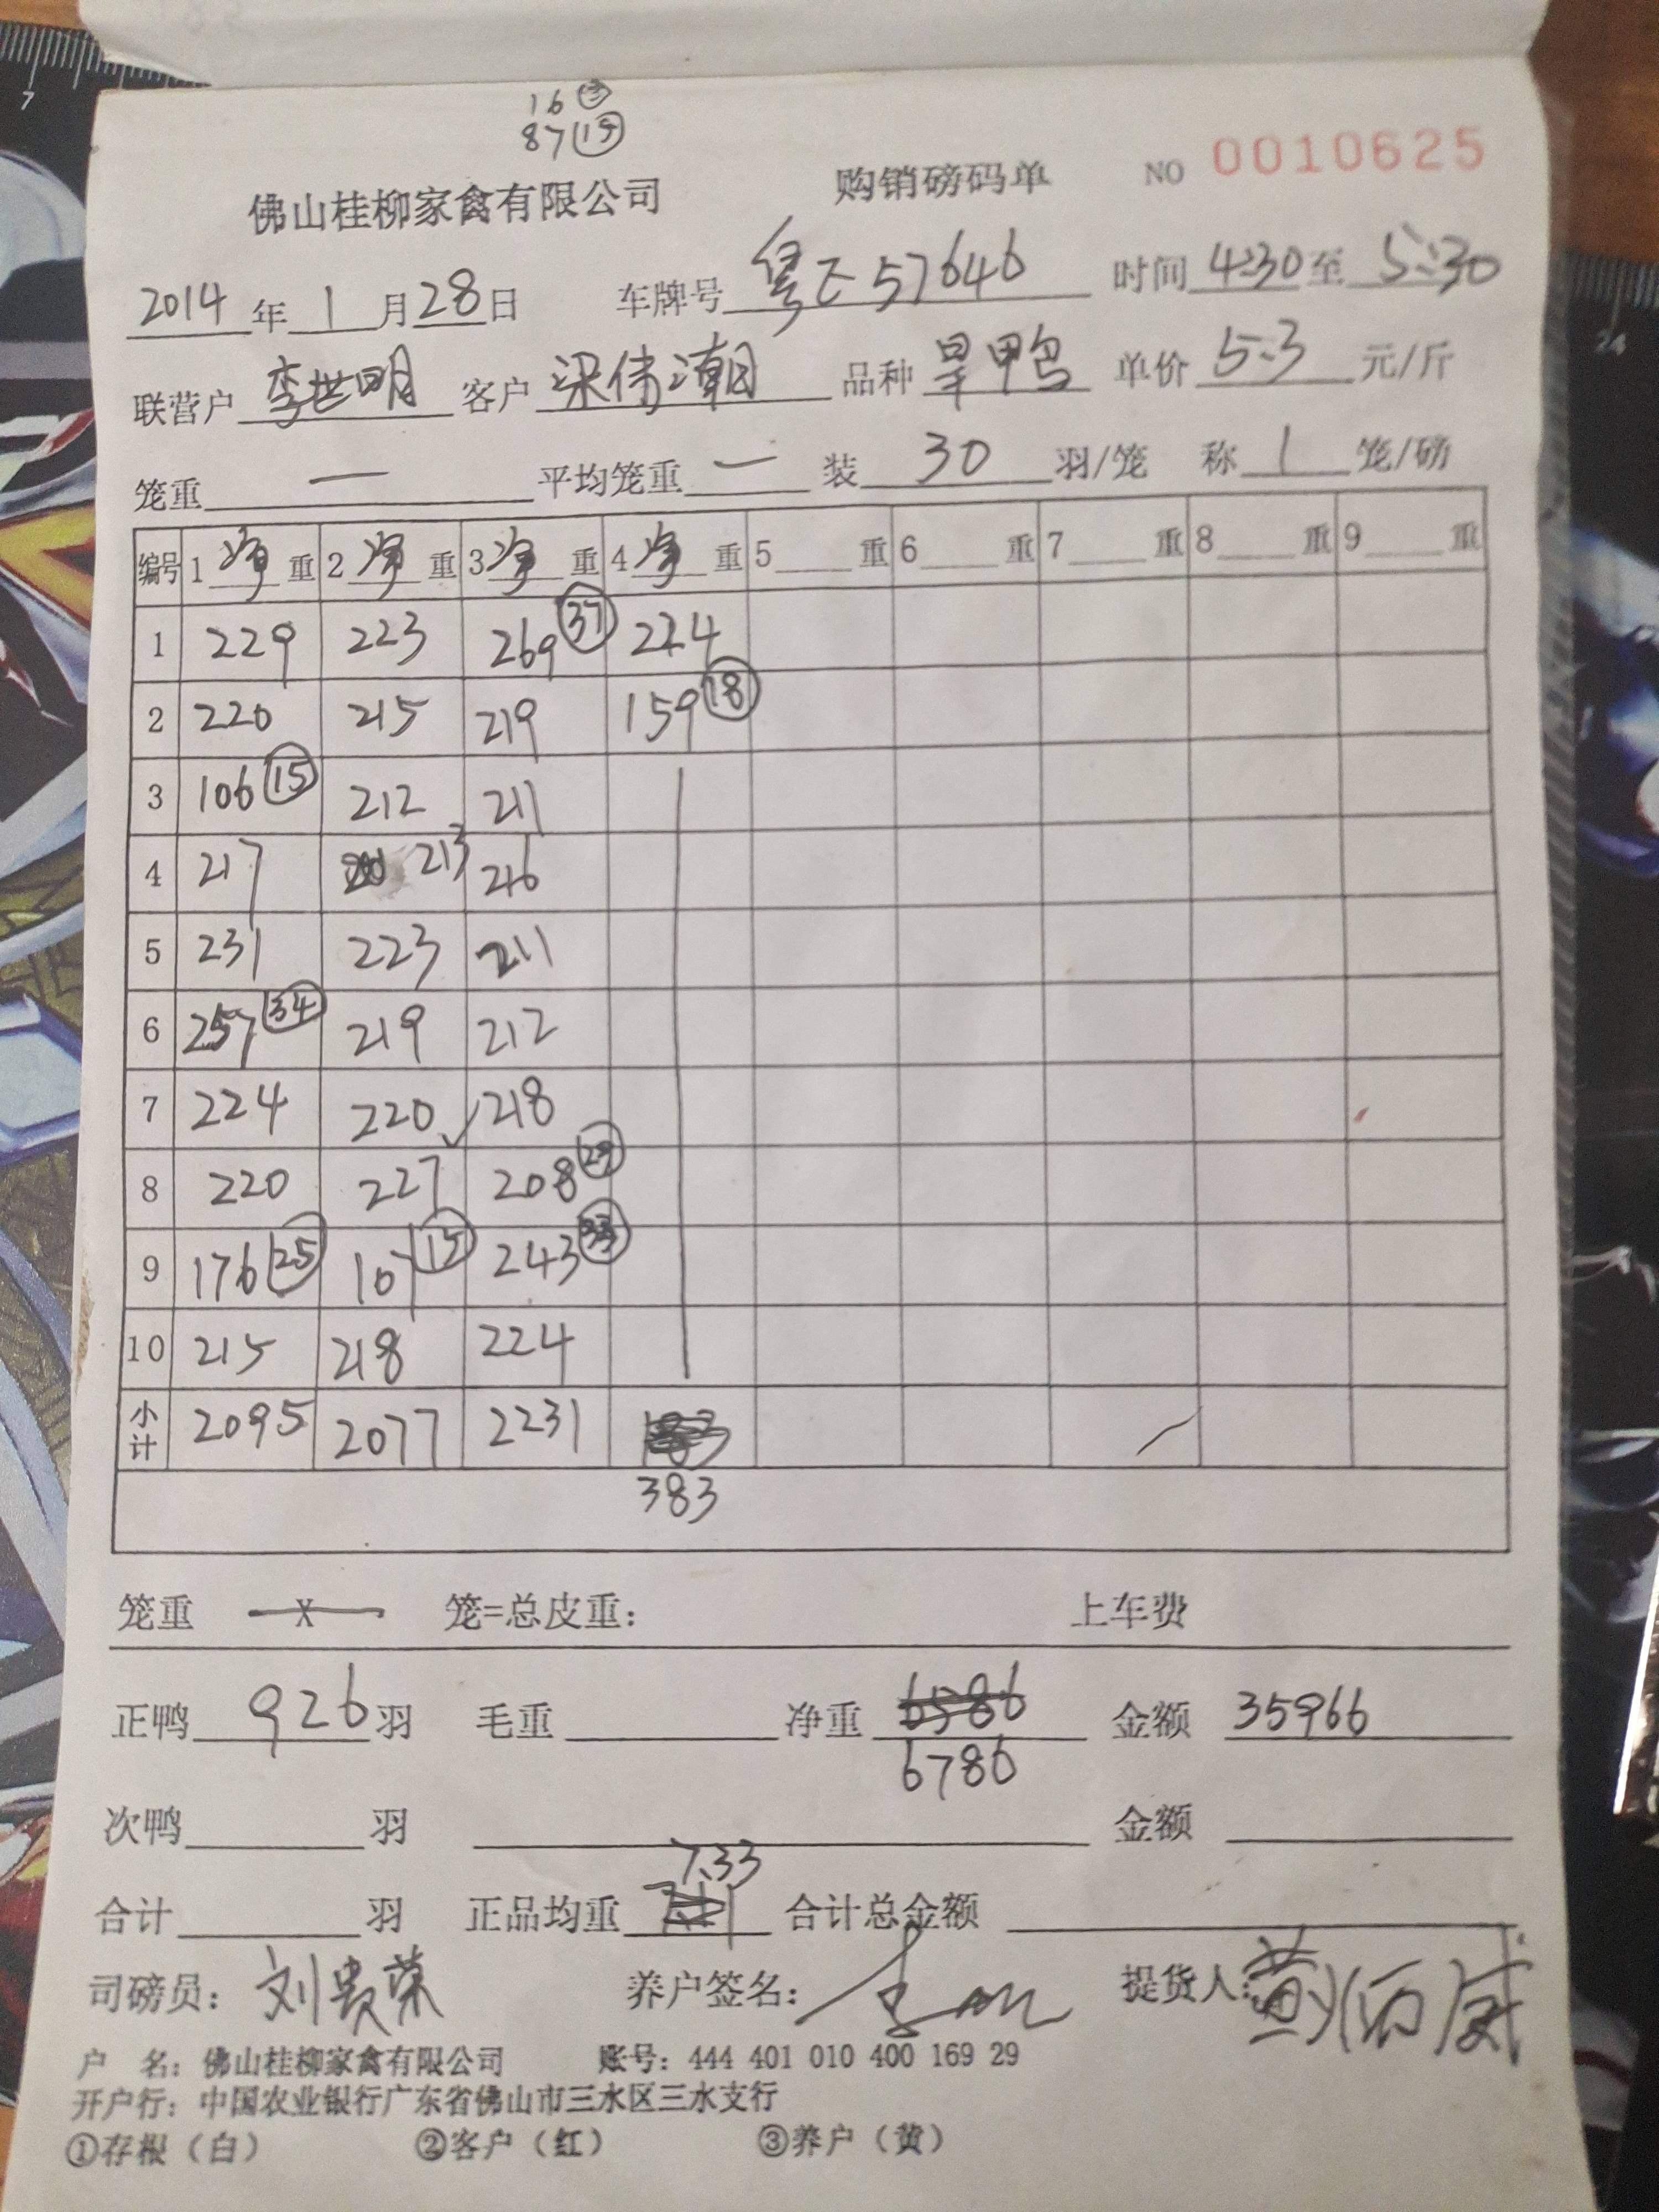 16
87 15
佛山桂柳家禽有限公司 购销磅码单 NO 0010625
2014年1月28日 车牌号 粤E57646 时间 4:30至5:30
联营户 李世明 客户 梁伟潮 品种 旱甲鸟 单价 5.3 元/斤
笼重 一 平均笼重 一 装 30 羽/笼 称 1 笼/磅
编号 1 净 重 2 净 重 3 净 重 4 净 重 5 重 6 重 7 重 8 重 9 重
1 229 223 269 37 224
2 220 215 219 159 18
3 106 15 212 211
4 217 213 216
5 231 223 211
6 257 34 219 212
7 224 220 218
8 220 227 208 29
9 176 25 107 15 243 33
10 215 218 224
小计 2095 2077 2231
383
笼重 x 笼=总皮重: 上车费
正鸭 926 羽 毛重 净重 6586 金额 35966
6786
次鸭 羽 金额
7.33
合计 羽 正品均重 合计总金额
司磅员: 刘贵荣 养户签名: 提货人: 黄炳威
户 名: 佛山桂柳家禽有限公司 账号: 444 401 010 400 169 29
开户行: 中国农业银行广东省佛山市三水区三水支行
①存根(白) ②客户(红) ③养户(黄)